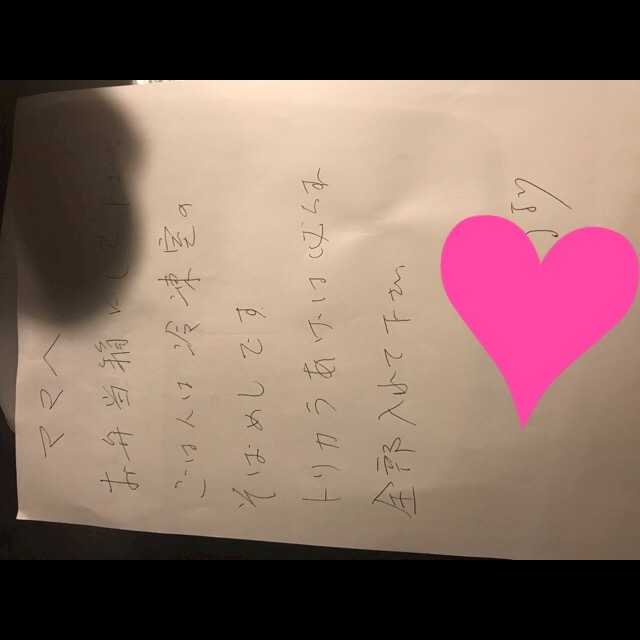 ママへ
お弁当箱にして下さい。
ごはんは冷凍室の
そばめしです
トリカラあげは必らず
全部入れて下さい
より